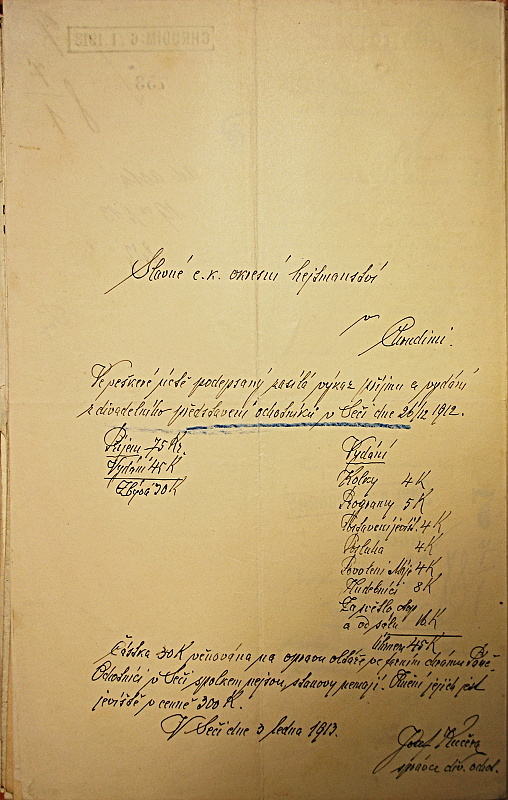 CHRUDIM 6/1 1913
Slavné c.k. okresní hejtmanství
v
Chrudimi.
Ve veškeré úctě podepsaný zasílá výkaz příjmu a vydání
z divadelního představení ochotníků v Seči dne 26/12 1912.
Příjem 75 K.
Vydání 45 K
Zbývá 30 K
Vydání
Kolky 4 K
Programy 5 K
Postavení jevišt. 4 K
Posluha 4 K
Povolení Máje 4 K
Hudebníci 8 K
Za světlo
a od sálu 16 K
Úhrnem 45 K
Částka 30 K věnována na opravu oltáře ve farním chrámu Páně
Ochotníci v Seči spolkem nejsou, stanovy nemají. Jmění jejich jest
jeviště v cenně 300 K.
V Seči dne 3 ledna 1913.
Josef Kučera
správce div. ochot.